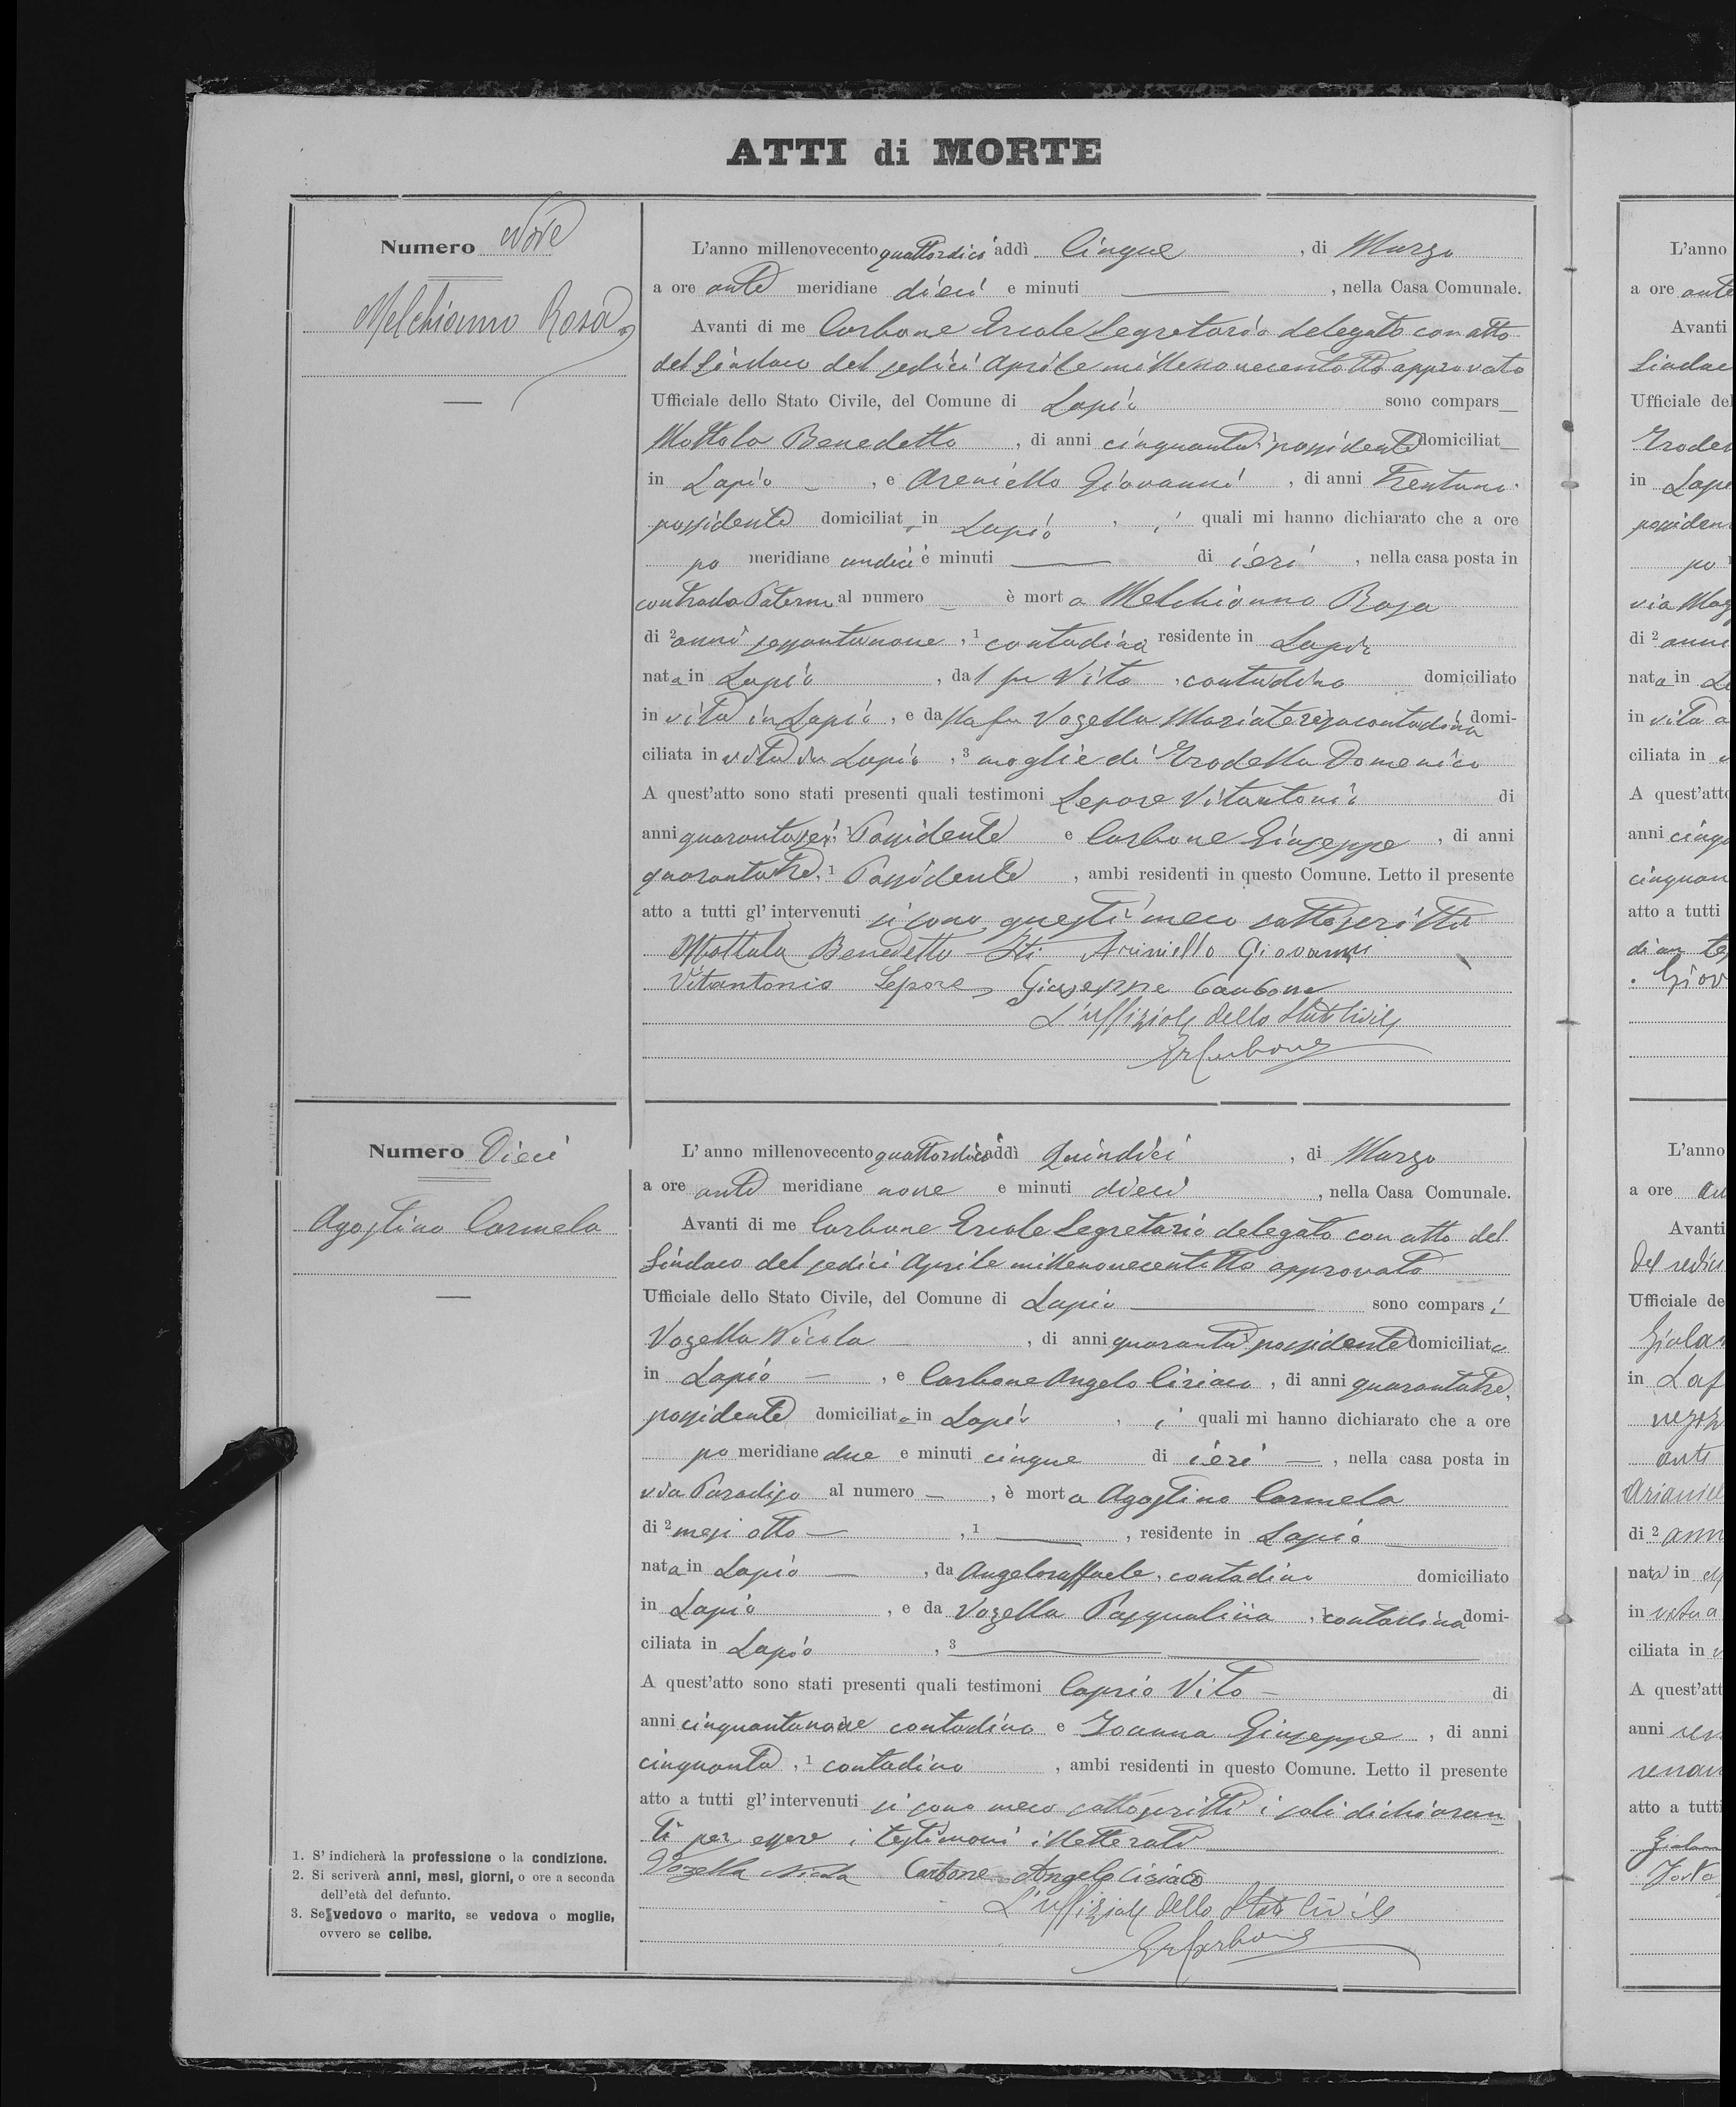 ATTI di MORTE
Numero Nove
Melchionno Rosa
L'anno millenovecento quattordici addì Cinque, di Marzo
a ore ante meridiane dieci e minuti —, nella Casa Comunale.
Avanti di me Carbone Ercole Segretario delegato con atto
del Sindaco del sedici Aprile millenovecentotto approvato
Ufficiale dello Stato Civile, del Comune di Lapio sono compars_
Mottola Benedetto, di anni cinquanta, possidente domiciliat_
in Lapio —, e Areniello Giovanni, di anni trentuno
possidente domiciliat_ in Lapio, i quali mi hanno dichiarato che a ore
po meridiane undici e minuti — di ieri, nella casa posta in
contrada Paterni al numero —, è morta Melchionno Rosa
di 2 anni sessantanove, 1 contadina residente in Lapio
nata in Lapio, dal fu Vito, contadino domiciliato
in vita in Lapio, e dalla fu Vozella Mariateresa contadina domi-
ciliata in vita in Lapio, 3 moglie di Trodella Domenico
A quest'atto sono stati presenti quali testimoni Lepore Vitantonio di
anni quarantasei, Possidente e Carbone Giuseppe, di anni
quarantatre, 1 Possidente, ambi residenti in questo Comune. Letto il presente
atto a tutti gl'intervenuti si sono questi meco sottoscritti
Mottola Benedetto Ariniello Giovanni
Vitantonio Lepore Giuseppe Carbone
L'uffiziale dello Stato Civile
Er Carbone
Numero Dieci
Agostino Carmela
L'anno millenovecento quattordici addì Quindici, di Marzo
a ore ante meridiane nove e minuti dieci, nella Casa Comunale.
Avanti di me Carbone Ercole Segretario delegato con atto del
Sindaco del sedici Aprile millenovecentotto approvato
Ufficiale dello Stato Civile, del Comune di Lapio — sono comparsi
Vozella Nicola —, di anni quaranta possidente domiciliato
in Lapio —, e Carbone Angelo Ciriaco, di anni quarantatre,
possidente domiciliato in Lapio, i quali mi hanno dichiarato che a ore
po meridiane due e minuti cinque di ieri —, nella casa posta in
via Paradiso al numero —, è morta Agostino Carmela
di 2 mesi otto —, 1 —, residente in Lapio —
nata in Lapio —, da Angeloraffaele, contadino domiciliato
in Lapio, e da Vozella Pasqualina, contadina domi-
ciliata in Lapio, 3 —
A quest'atto sono stati presenti quali testimoni Caprio Vito — di
anni cinquantanove contadino e Ioanna Giuseppe, di anni
cinquanta, 1 contadino, ambi residenti in questo Comune. Letto il presente
atto a tutti gl'intervenuti si sono meco sottoscritti i soli dichiaran
ti per essere i testimoni illetterati
Vozella Nicola Carbone Angelo Ciriaco
L'uffiziale dello Stato Civile
Er Carbone
1. S'indicherà la professione o la condizione.
2. Si scriverà anni, mesi, giorni, o ore a seconda
dell'età del defunto.
3. Se vedovo o marito, se vedova o moglie,
ovvero se celibe.
L'anno
a ore ante
Avanti
Sindac
Ufficiale del
in Lapi
possiden
po
via Mag
di 2 anni
nata in
in vita
ciliata in
A quest'atto
anni cinqu
cinquan
atto a tutti
L'anno
a ore
Avanti
Ufficiale de
in
ante
di 2 ann
nata in
in
ciliata in
A quest'att
anni
atto a tutti